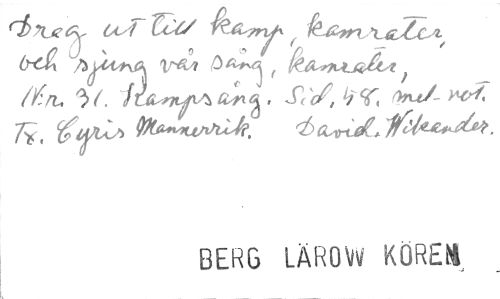 Drag ut till kamp, kamrater,
och sjung vår sång, kamrater,
N:r. 31. Kampsång. Sid, 58. mel-not.
Tx. Cyris Mannerrik. David. Wikander.
BERG LÄROW KÖREN